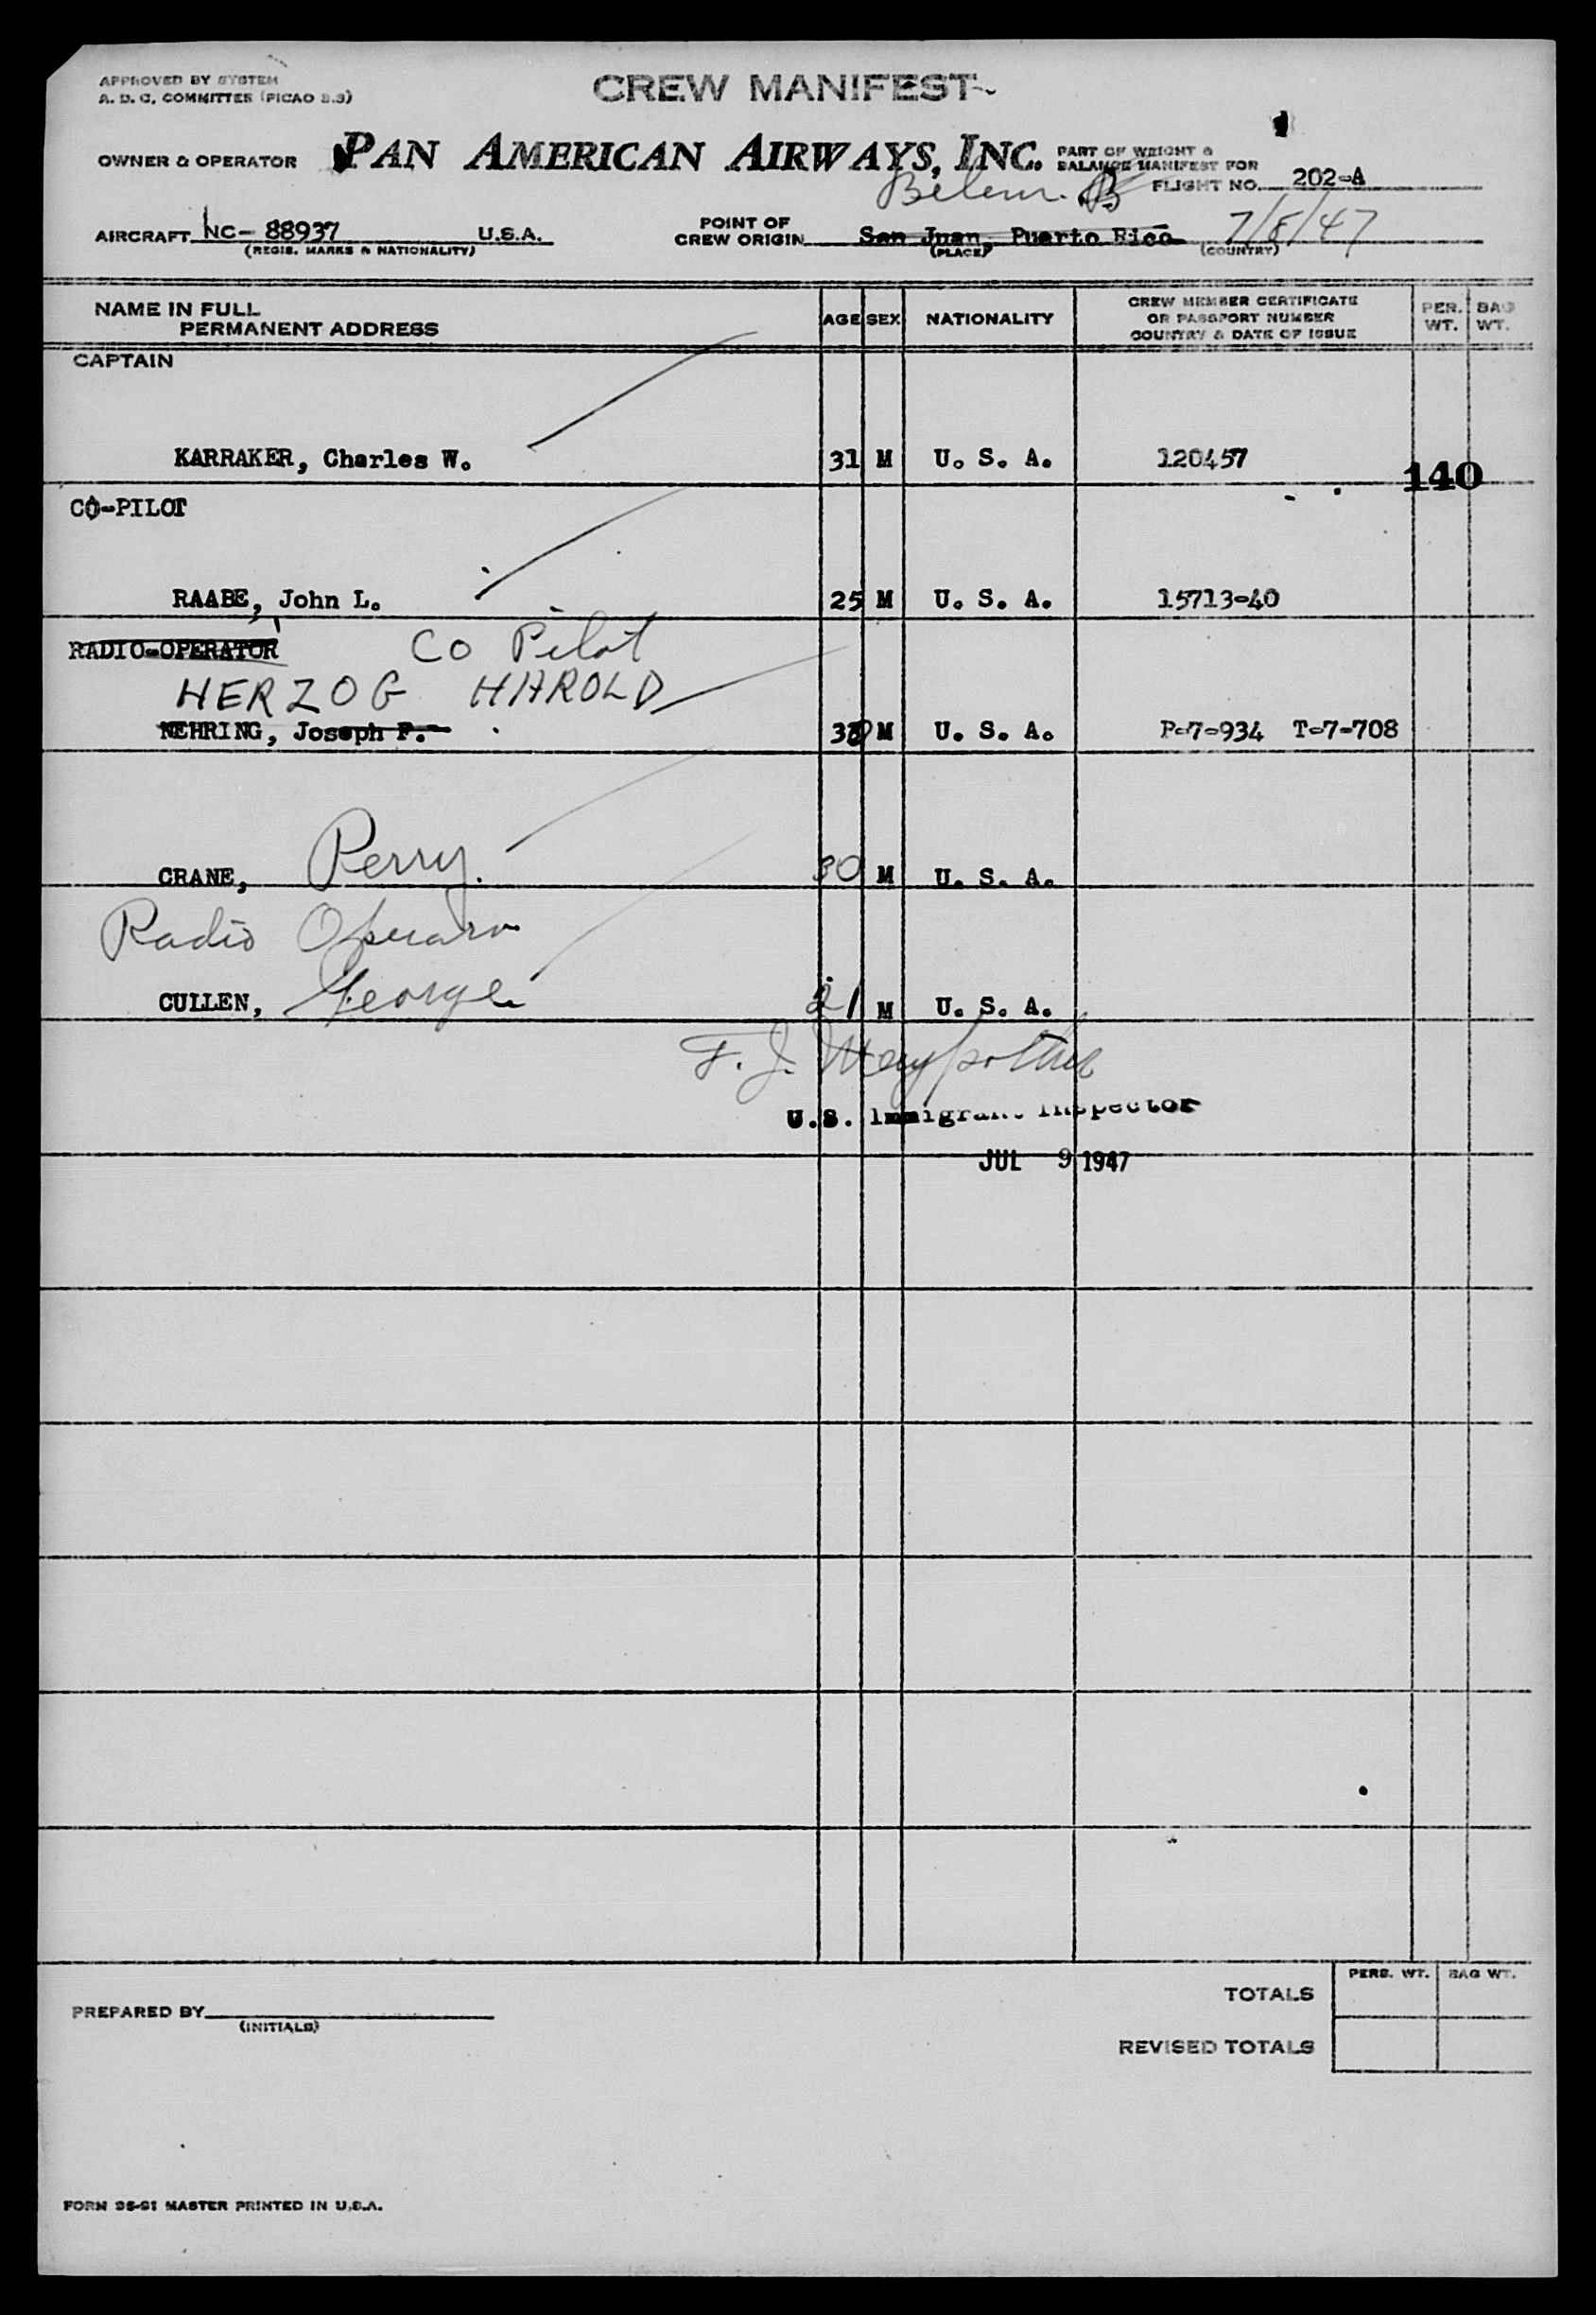 APPROVED BY SYSTEM
A. D. C. COMMITTEE (PICAO 2.3)
CREW MANIFEST
OWNER & OPERATOR PAN AMERICAN AIRWAYS, INC. PART OF WEIGHT &
BALANCE MANIFEST FOR
Belem. FLIGHT NO. 202-A
AIRCRAFT NC- 88937 U.S.A. POINT OF
CREW ORIGIN San Juan, Puerto Rico 7/8/47
(REGIS. MARKS & NATIONALITY) (PLACE) (COUNTRY)
NAME IN FULL
PERMANENT ADDRESS AGE SEX NATIONALITY CREW MEMBER CERTIFICATE
OR PASSPORT NUMBER
COUNTRY & DATE OF ISSUE PER. WT. BAG WT.
CAPTAIN
KARRAKER, Charles W. 31 M U. S. A. 120457
140
CO-PILOT
RAABE, John L. 25 M U. S. A. 15713-40
RADIO-OPERATOR Co Pilot
HERZOG HAROLD
NEHRING, Joseph F. M U. S. A. P-7-934 T-7-708
CRANE, Perry. 30 M U. S. A.
Radio Operator
CULLEN, George 21 M U. S. A.
F. J.
U.S. Immigrant Inspector
JUL 9 1947
PERS. WT. BAG WT.
TOTALS
PREPARED BY
(INITIALS)
REVISED TOTALS
FORM 96-91 MASTER PRINTED IN U.S.A.